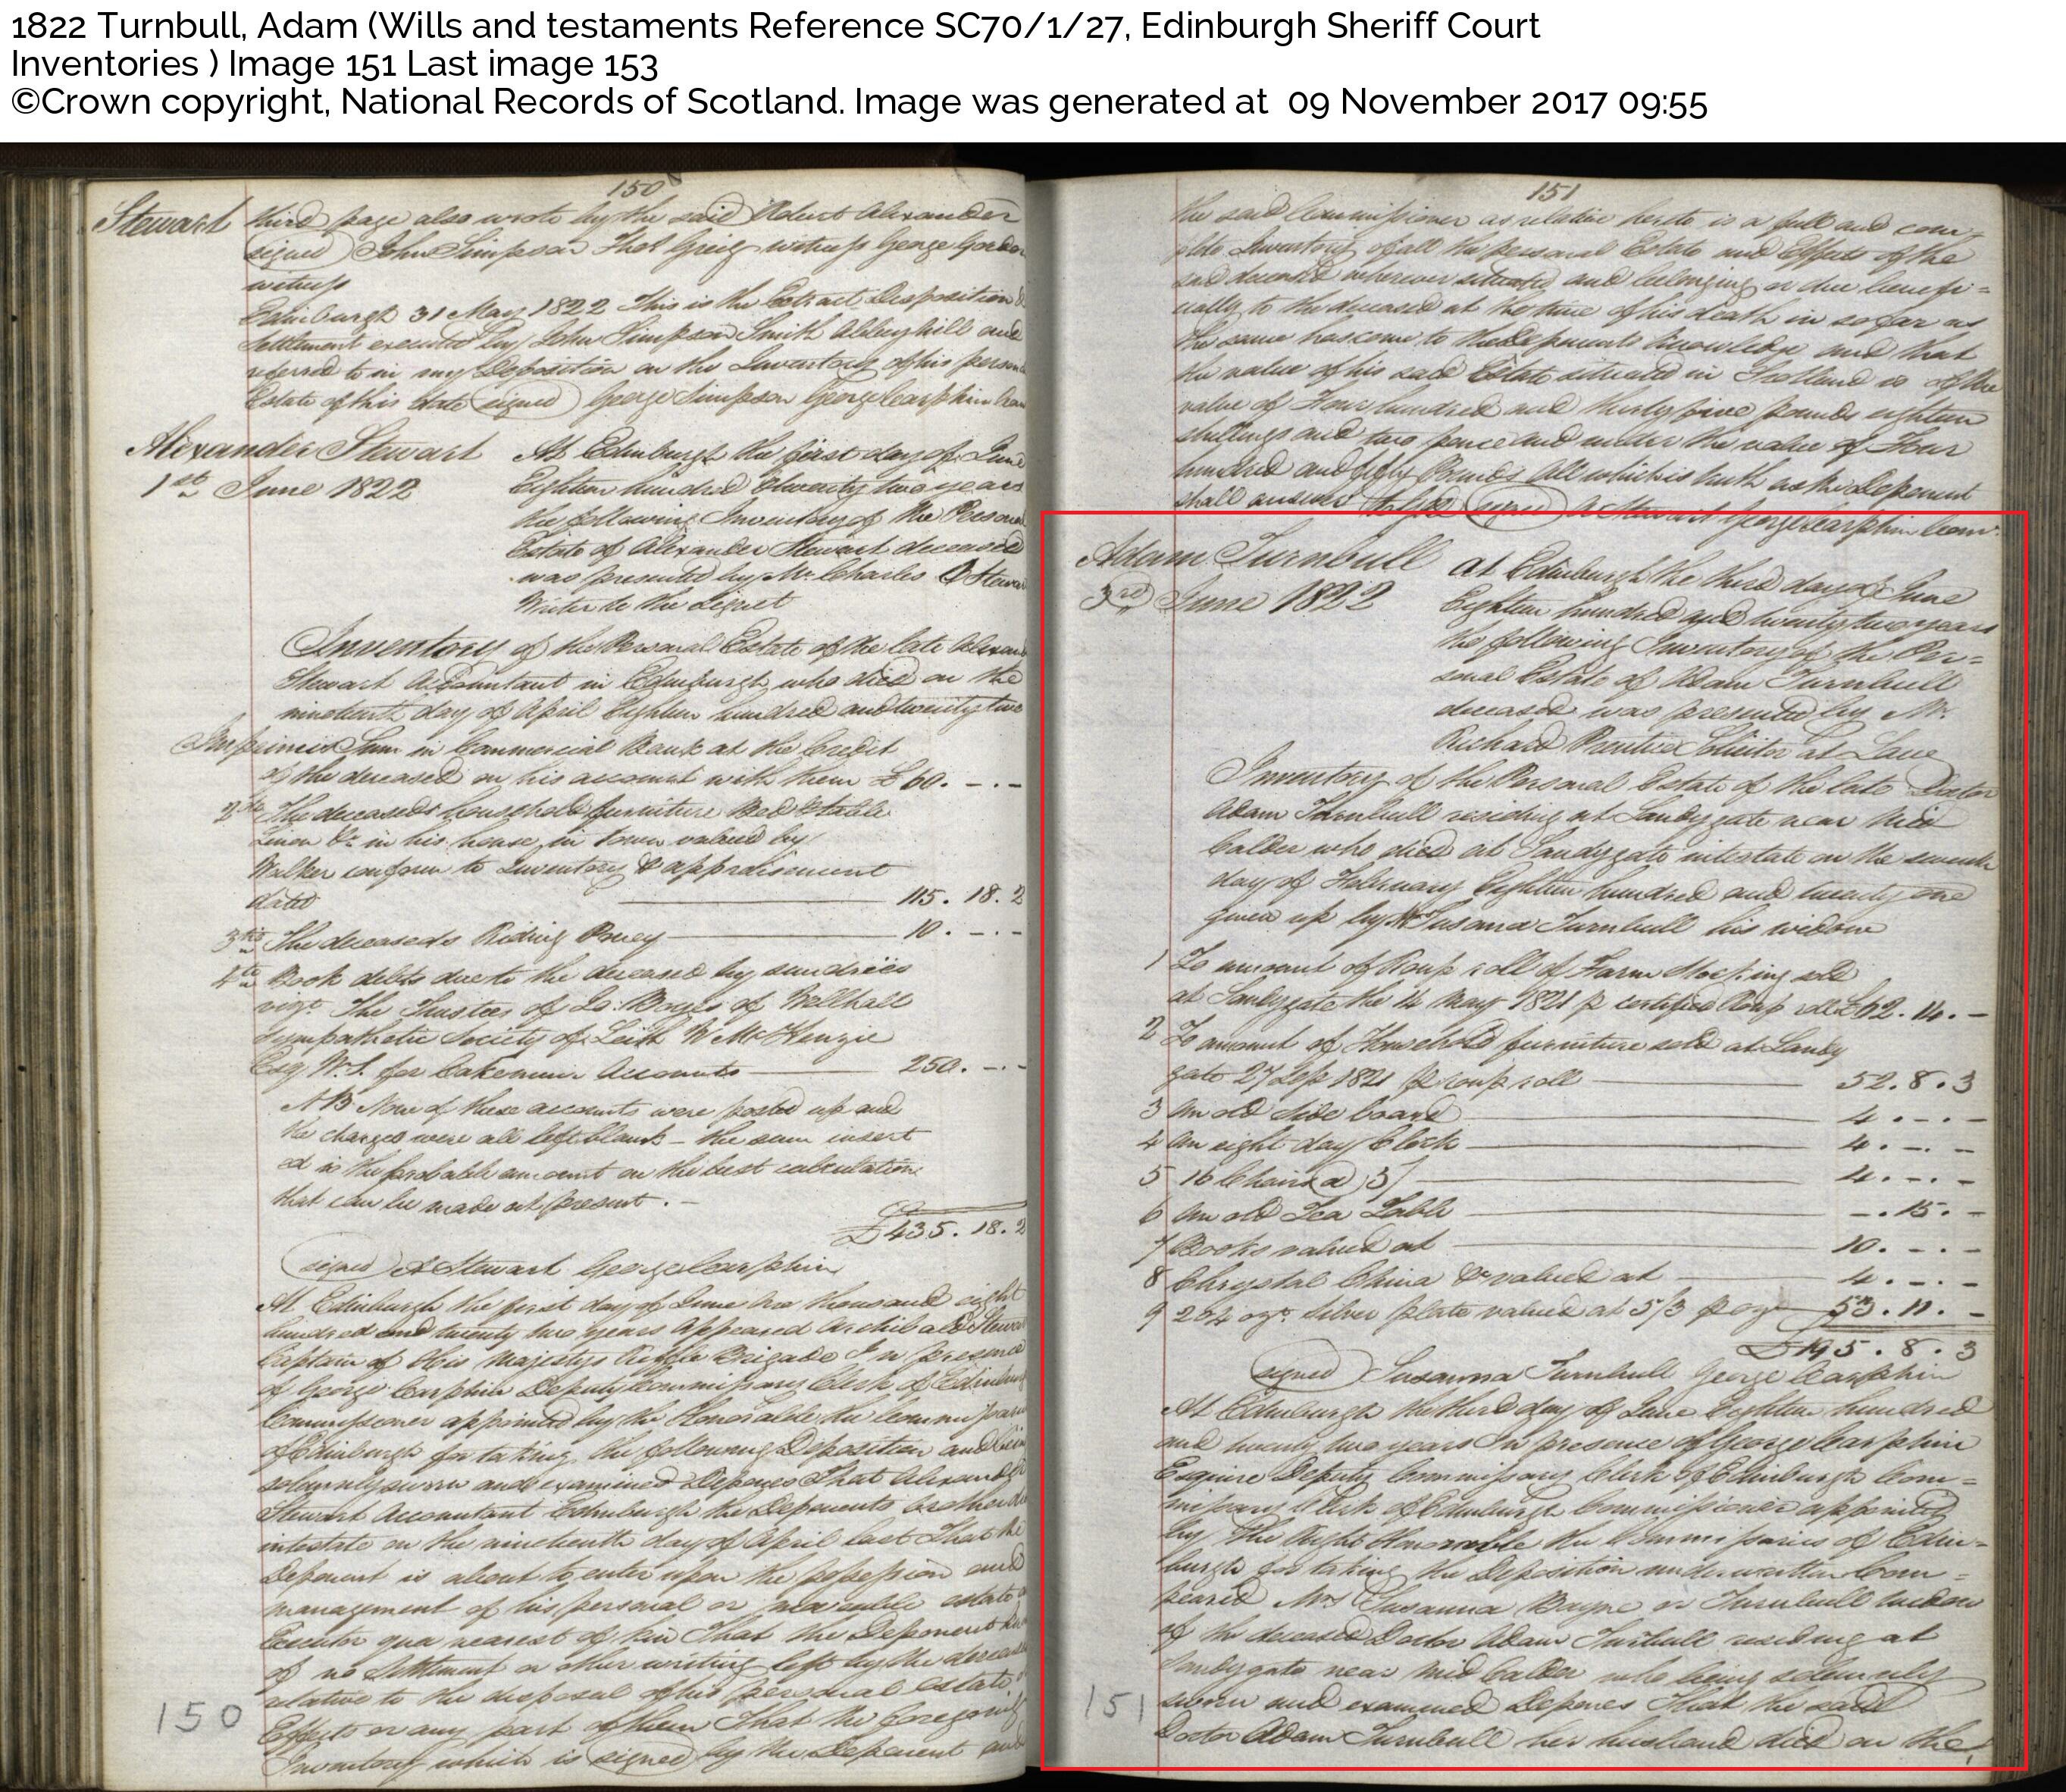 1822 Turnbull, Adam (Wills and testaments Reference SC70/1/27, Edinburgh Sheriff Court
Inventories ) Image 151 Last image 153
©Crown copyright, National Records of Scotland. Image was generated at 09 November 2017 09:55
150
Stewart third page also wrote by the said Robert Alexander
signed) John Simpson Thos Greig witness George Gordon
witness
Edinburgh 31 May 1822 This is the Extract Disposition &
Settlement executed by John Simpson Smith Abbeyhill and
referred to in my Deposition on the Inventory of his person
Estate of this date (signed) George Simpson George Carphin Com
Alexander Stewart At Edinburgh the first day of June
1st June 1822 Eighteen hundred & twenty two years
the following Inventory of the Personal
Estate of Alexander Stewart deceased
was presented by Mr Charles Stewa
Writer to the Signet
Inventory of the Personal Estate of the late Alexan
Stewart Accountant in Edinburgh who died on the
nineteenth day of April Eighteen hundred and twenty two
Imprimis Sum in Commercial Bank at the Credit
of the deceased on his account with them £60. -. -
2do The deceased's household furniture Bed & table
Linen &c in his house in town valued by
Walker conform to Inventory & appraisement
dated 115. 18. 2
3tio The deceaseds Riding Poney 10. -. -
4to Book debts due to the deceased by sundries
vizt The Trustees of Bogle of
Sympathetic Society of Leith W McKenzie
Esq W.S. for Cakemuir Accounts 250. -. -
NB None of these accounts were posted up and
the charges were all left blank - the sum insert
ed is the probable amount on the best calculation
that can be made at present. -
£435. 18. 2
(signed) A Stewart George Carphin
At Edinburgh the first day of June One thousand eight
hundred and twenty two years Appeared Archibald Stewa
Captain of His Majestys Riffle Brigade In presence
of George Carphin Deputy Commissary Clerk of Edinburg
Commissioner appointed by the Honorable the Commissari
of Edinburgh for taking the following Deposition and being
solemnly sworn and examined Depones That Alexander
Stewart Accountant Edinburgh the Deponents brother died
intestate on the nineteenth day of April last That the
Deponent is about to enter upon the possession and
management of his personal or moveable estate as
Executor qua nearest of kin That the Deponent kn
of no Settlement or other writing left by the deceas
relative to the disposal of his personal estate or
Effects or any part of them That the foregoing
Inventory which is signed by the Deponent and
150
151
the said Commissioner as relative hereto is a full and com=
plete Inventory of all the personal Estate and Effects of the
said deceased wherever situated and belonging or due benefi=
cially to the deceased at the time of his death in so far as
the same has come to the Deponents knowledge and that
the value of his said Estate situated in Scotland is of the
value of Four hundred and thirty five pounds eighteen
shillings and two pence and under the value of Four
hundred and fifty Pounds All which is truth as the Deponent
shall answer to God (signed) A Stewart George Carphin Com.
Adam Turnbull At Edinburgh the third day of June
3rd June 1822 Eighteen hundred and twenty two years
the following Inventory of the Per=
sonal Estate of Adam Turnbull
deceased was presented by Mr.
Richard Prentice Solicitor at Law
Inventory of the Personal Estate of the late Doctor
Adam Turnbull residing at Sandygate near Mid
Calder who died at Sandygate intestate on the seventh
day of February Eighteen hundred and twenty one
given up by Mrs Susanna Turnbull his widow
1 To amount of Roup roll of Farm Stocking sold
at Sandygate the 4 May 1821 p certified Roup roll £62. 14. -
2 To amount of Household furniture sold at Sandy
gate 27 Sep 1821 p roup roll 52. 8. 3
3 An old Side board 4. -. -
4 An eight day Clock 4. -. -
5 16 Chairs @ 5/ 4. -. -
6 An old Tea Table -. 15. -
7 Books valued at 10. -. -
8 Chrystal China &c valued at 4. -. -
9 204 ozs. Silver plate valued at 5/3 p oz 53. 11. -
£195. 8. 3
(signed) Susanna Turnbull George Carphin
At Edinburgh the third day of June Eighteen hundred
and twenty two years In presence of George Carphin
Esquire Deputy Commissary Clerk of Edinburgh Com=
missary Clerk of Edinburgh Commissioner appointed
by The Right Honorable the Commissaries of Edin=
burgh for taking the Deposition underwritten Com=
peared Mrs Susanna Bayne or Turnbull widow
of the deceased Doctor Adam Turnbull residing at
Sandygate near Mid Calder who being solemnly
sworn and examined Depones That the said
Doctor Adam Turnbull her husband died on the
151